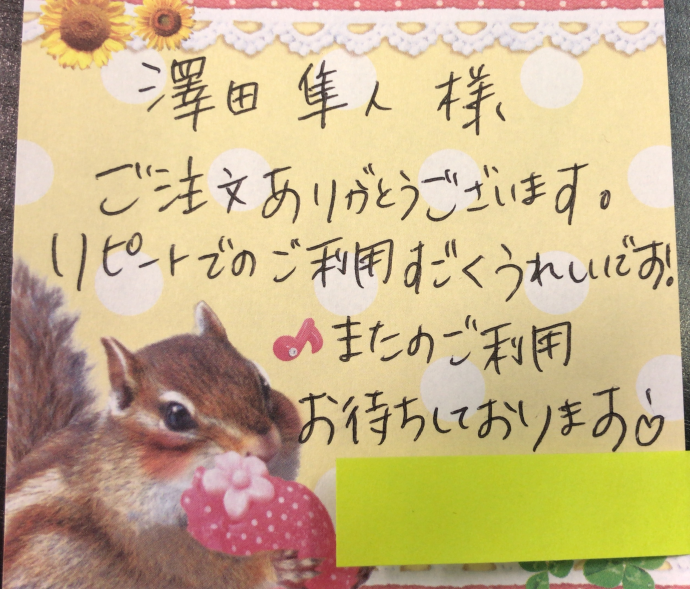 澤田 隼人 様
ご注文ありがとうございます。
リピートでのご利用すごくうれしいです!
またのご利用
お待ちしております♡